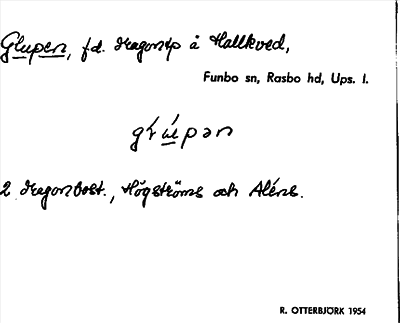 Glupen, fd. dragontp å Hallkved,
Funbo sn, Rasbo hd, Ups. l.
2 dragonbost., Högströms och Aléns.
R. OTTERBJÖRK 1954